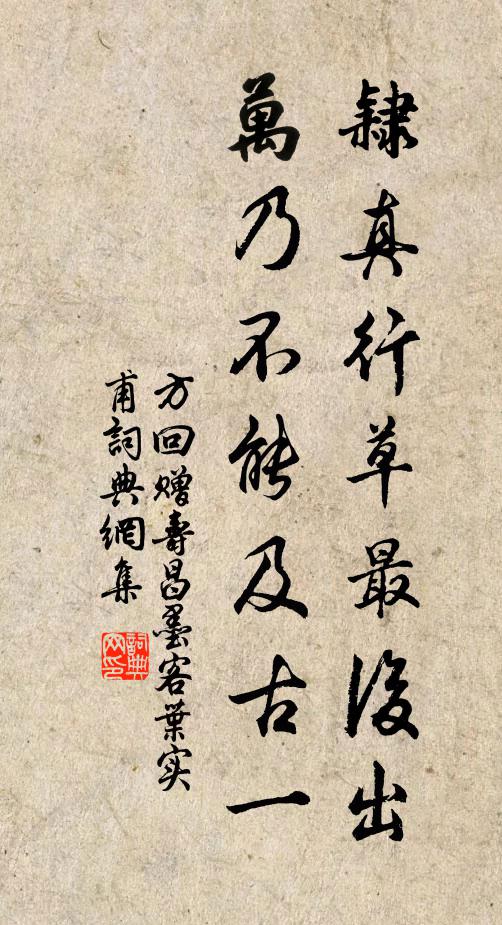 隸真行草最後出
萬乃不能及古一
方回贈壽昌墨客葉实
甫詞典網集
詞典网印